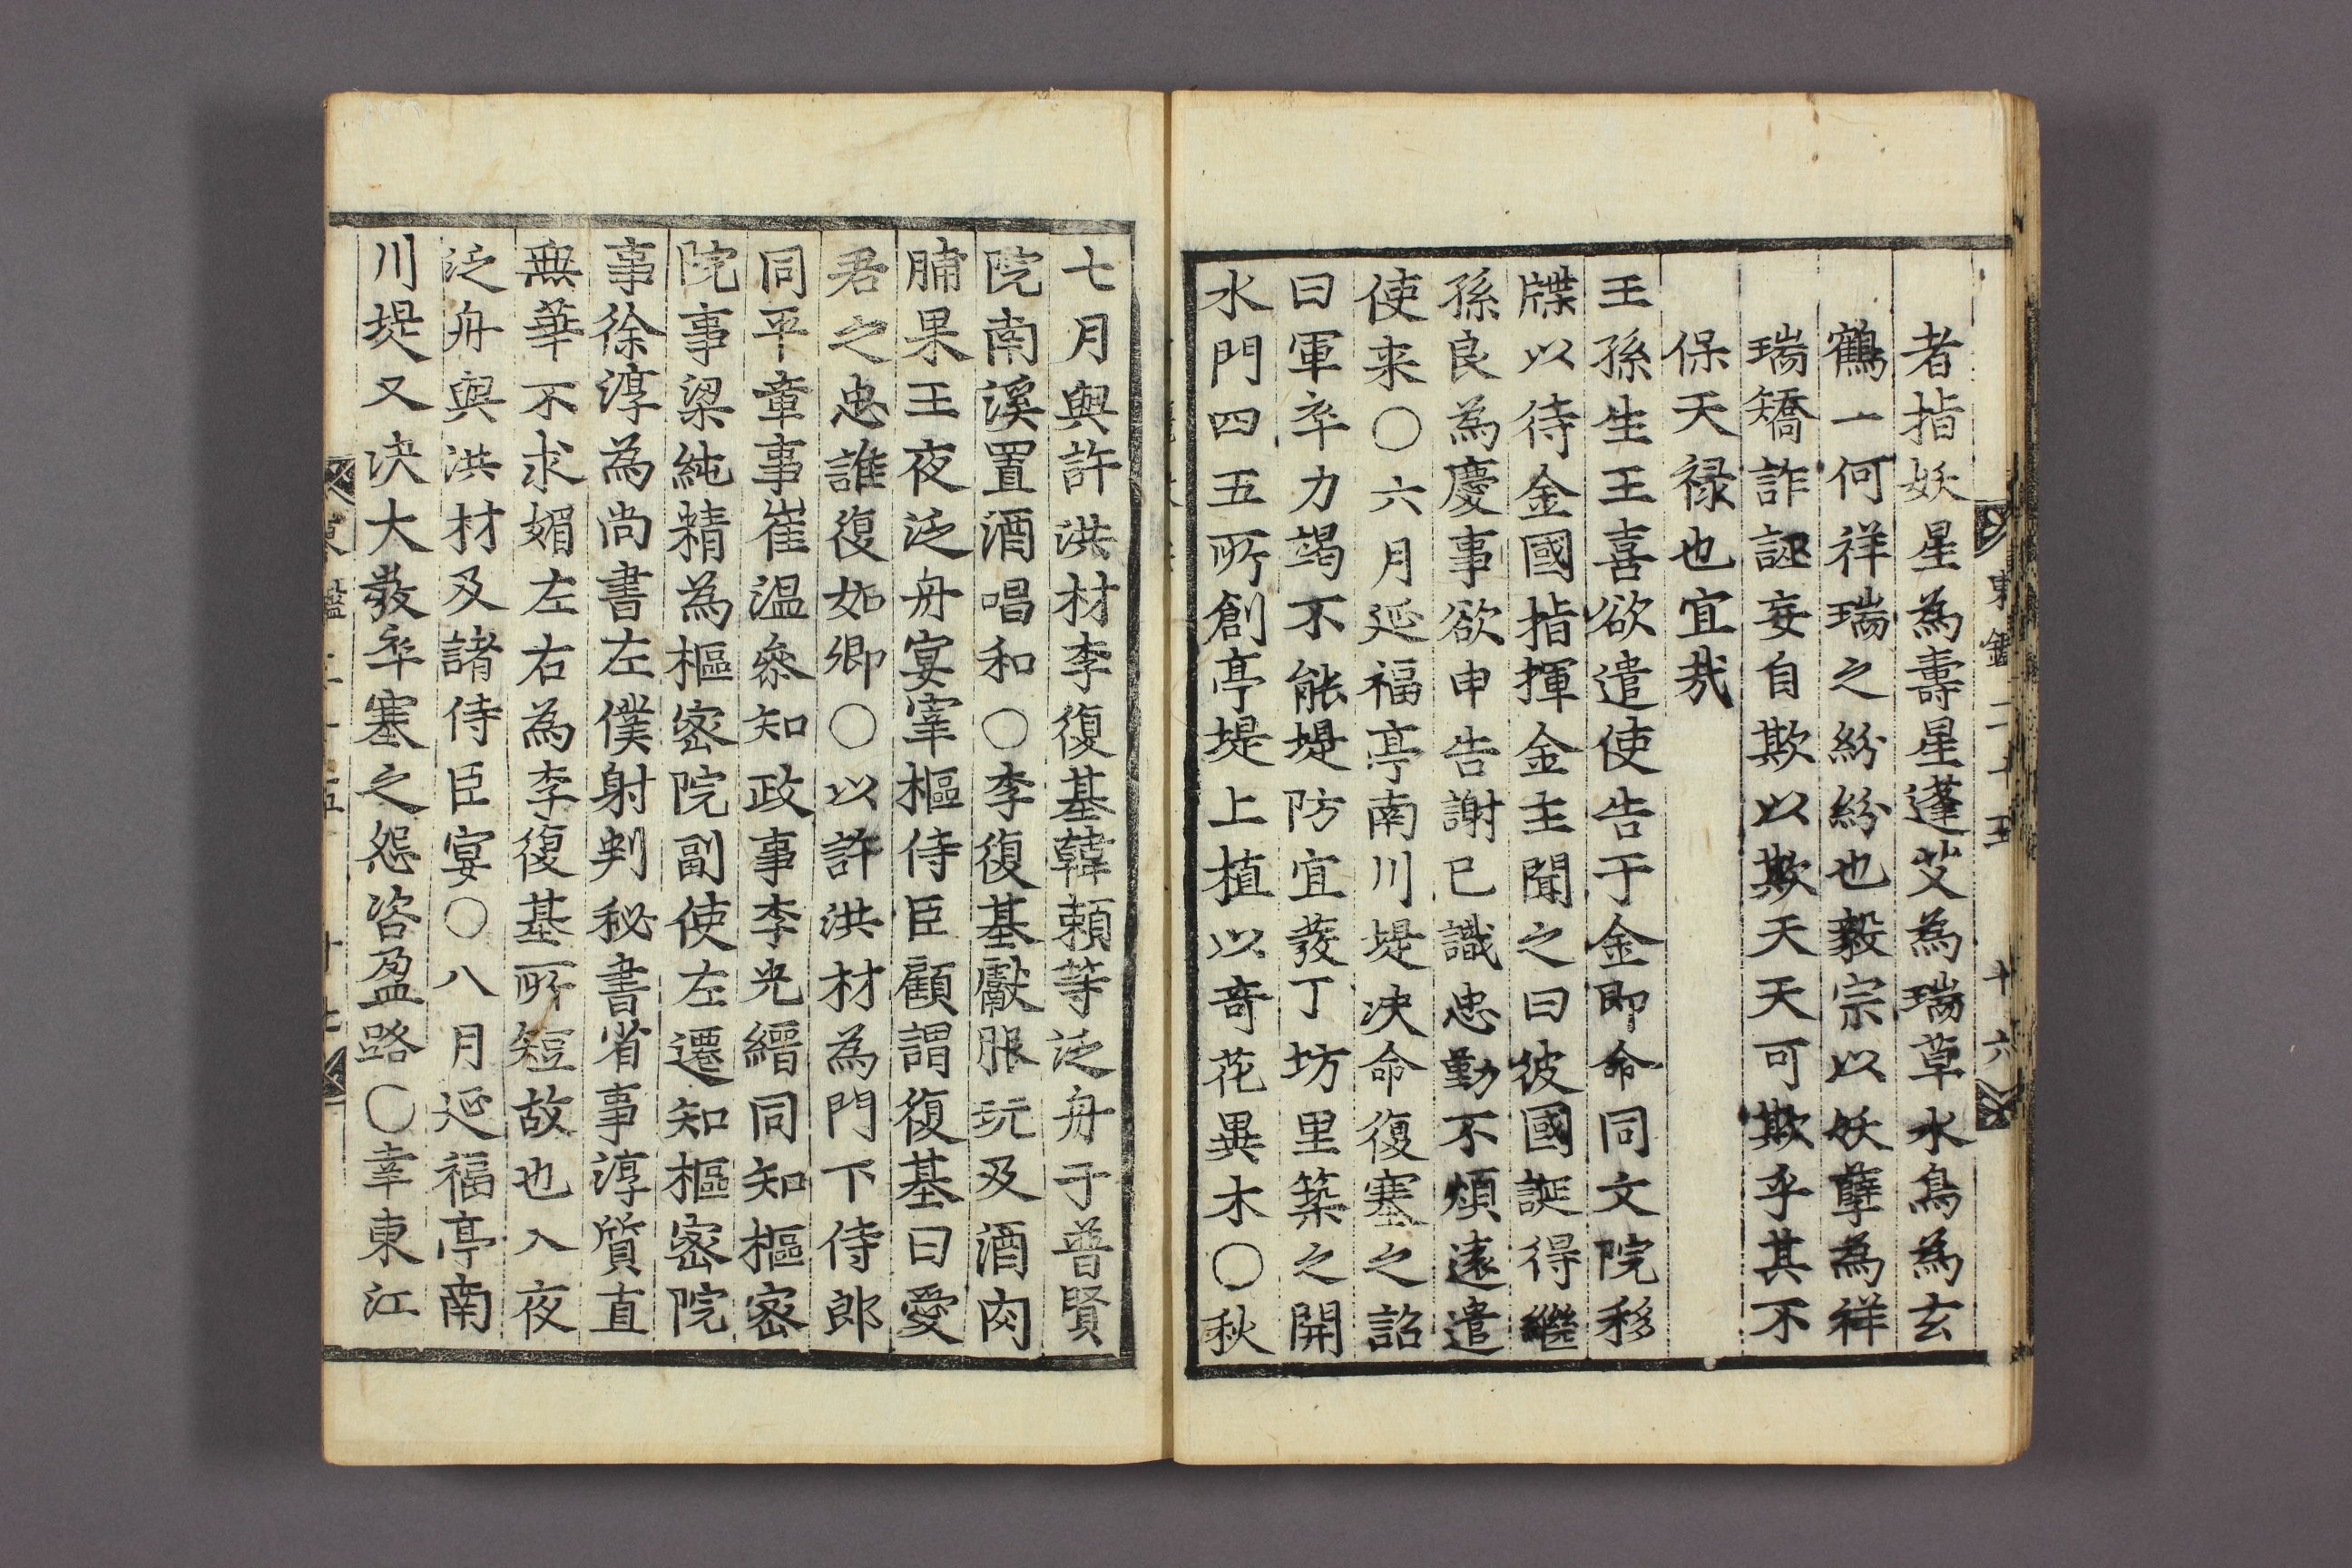 東鑑二十五 十六
者指妖星為壽星蓬艾為瑞草水鳥為玄
鶴一何祥瑞之紛紛也毅宗以妖孽為祥
瑞矯詐誣妄自欺以欺天天可欺乎其不
保天禄也宜㢤
王孫生王喜欲遣使告于金即命同文院移
牒以待金國指揮金主聞之曰彼國誕得繼
孫良為慶事欲申告謝已識忠勤不煩遠遣
使来○六月延福亭南川堤决命復塞之詔
曰軍卒力竭不能堤防宜發丁坊里築之開
水門四五所創亭堤上植以奇花異木○秋
七月與許洪材李復基韓頼等泛舟于普賢
院南溪置酒唱和○李復基獻服玩及酒肉
脯果王夜泛舟宴宰樞侍臣顧謂復基曰愛
君之忠誰復如卿○以許洪材為門下侍郎
同平章事崔温叅知政事李光縉同知樞密
院事梁純精為樞密院副使左遷知樞密院
事徐淳為尚書左僕射判秘書省事淳質直
無華不求媚左右為李復基所短故也入夜
泛舟與洪材及諸侍臣宴○八月延福亭南
川堤又决大發卒塞之怨咨盈路○幸東江